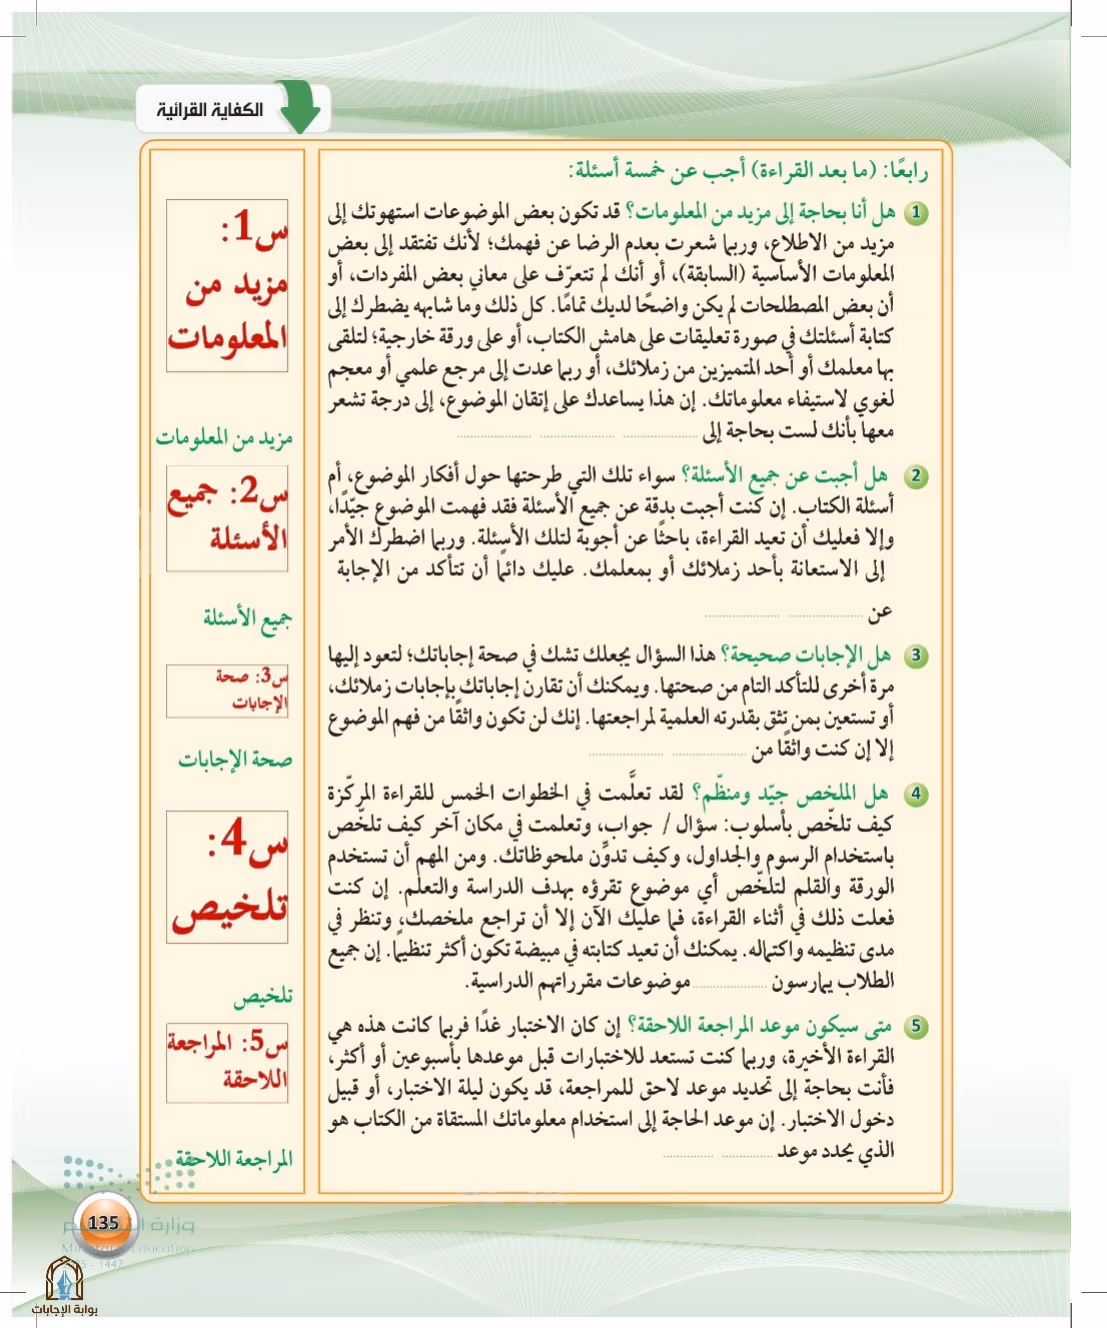 الكفاية القرائية
رابعًا: (ما بعد القراءة) أجب عن خمسة أسئلة:
1 هل أنا بحاجة إلى مزيد من المعلومات؟ قد تكون بعض الموضوعات استهوتك إلى
مزيد من الاطلاع، وربما شعرت بعدم الرضا عن فهمك؛ لأنك تفتقد إلى بعض
المعلومات الأساسية (السابقة)، أو أنك لم تتعرّف على معاني بعض المفردات، أو
أن بعض المصطلحات لم يكن واضحًا لديك تمامًا. كل ذلك وما شابهه يضطرك إلى
كتابة أسئلتك في صورة تعليقات على هامش الكتاب، أو على ورقة خارجية؛ لتلقى
بها معلمك أو أحد المتميزين من زملائك، أو ربما عدت إلى مرجع علمي أو معجم
لغوي لاستيفاء معلوماتك. إن هذا يساعدك على إتقان الموضوع، إلى درجة تشعر
معها بأنك لست بحاجة إلى .................... .................... ....................
2 هل أجبت عن جميع الأسئلة؟ سواء تلك التي طرحتها حول أفكار الموضوع، أم
أسئلة الكتاب. إن كنت أجبت بدقة عن جميع الأسئلة فقد فهمت الموضوع جيّدًا،
وإلا فعليك أن تعيد القراءة، باحثًا عن أجوبة لتلك الأسئلة. وربما اضطرك الأمر
إلى الاستعانة بأحد زملائك أو بمعلمك. عليك دائمًا أن تتأكد من الإجابة
عن .................... ....................
3 هل الإجابات صحيحة؟ هذا السؤال يجعلك تشك في صحة إجاباتك؛ لتعود إليها
مرة أخرى للتأكد التام من صحتها. ويمكنك أن تقارن إجاباتك بإجابات زملائك،
أو تستعين بمن تثق بقدرته العلمية لمراجعتها. إنك لن تكون واثقًا من فهم الموضوع
إلا إن كنت واثقًا من .................... ....................
4 هل الملخص جيّد ومنظّم؟ لقد تعلَّمت في الخطوات الخمس للقراءة المركّزة
كيف تلخّص بأسلوب: سؤال / جواب، وتعلمت في مكان آخر كيف تلخّص
باستخدام الرسوم والجداول، وكيف تدوِّن ملحوظاتك. ومن المهم أن تستخدم
الورقة والقلم لتلخّص أي موضوع تقرؤه بهدف الدراسة والتعلم. إن كنت
فعلت ذلك في أثناء القراءة، فما عليك الآن إلا أن تراجع ملخصك، وتنظر في
مدى تنظيمه واكتماله. يمكنك أن تعيد كتابته في مبيضة تكون أكثر تنظيمًا. إن جميع
الطلاب يمارسون .................... موضوعات مقرراتهم الدراسية.
5 متى سيكون موعد المراجعة اللاحقة؟ إن كان الاختبار غدًا فربما كانت هذه هي
القراءة الأخيرة، وربما كنت تستعد للاختبارات قبل موعدها بأسبوعين أو أكثر،
فأنت بحاجة إلى تحديد موعد لاحق للمراجعة، قد يكون ليلة الاختبار، أو قبيل
دخول الاختبار. إن موعد الحاجة إلى استخدام معلوماتك المستقاة من الكتاب هو
الذي يحدد موعد .............. ..............
س1:
مزيد من
المعلومات
مزيد من المعلومات
س2: جميع
الأسئلة
جميع الأسئلة
س3: صحة
الإجابات
صحة الإجابات
س4:
تلخيص
تلخيص
س5: المراجعة
اللاحقة
المراجعة اللاحقة
135
وزارة
Education
1447
بوابة الإجابات